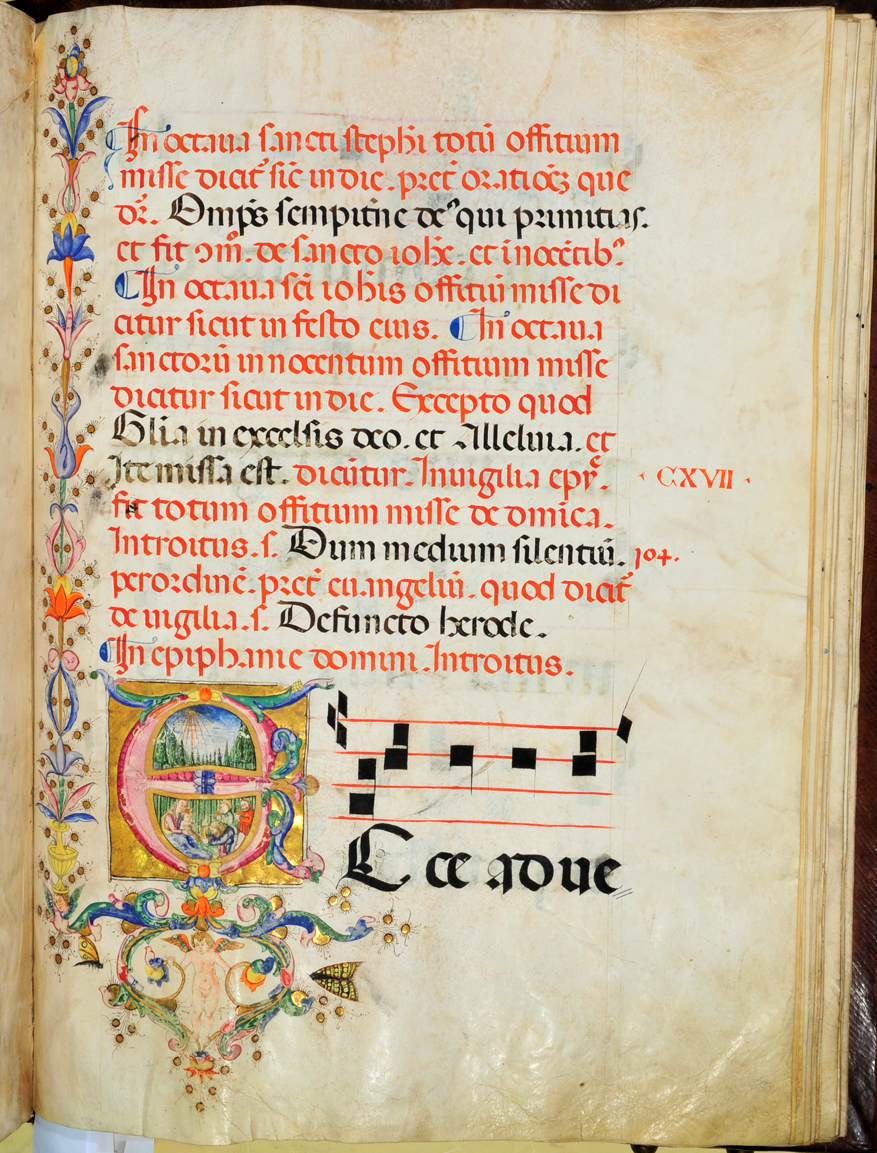 In octaua sancti stephi totū offitium
misse dicit᷒ sic̄ in die. pret᷒ oratioēs que
dr̄. Omps̄ sempitne de᷒ qui primitias.
et fit ↄm̄. de sancto iohe. et inocētib᷒
In octaua scī iohis offitiū misse di
citur sicut in festo eius. In octaua
sanctorū innocentum offitium misse
dicitur sicut in die. Excepto quod
Glīa in excelsis deo. et Alleluia. et
Ite missa est. dicūtur. In uigilia epy᷒.
· CXVII ·
fit totum offitium misse de dmica.
Introitus. s. Dum medium silentiū. 104.
per ordinē. pret᷒ euangeliū. quod dicit᷒
de uigilia. s. Defuncto herode.
In epiphanie domini. Introitus.
E
Ecce adue